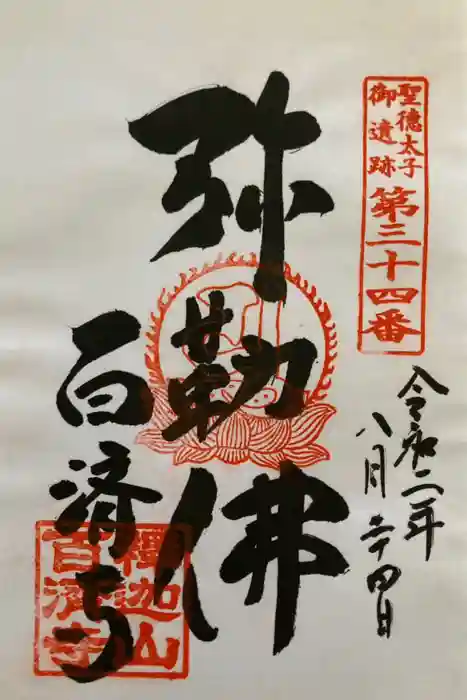 聖徳太子
御遺跡
第三十四番
令和二年
八月二十四日
弥勒佛
百済寺
釋迦山
百済寺